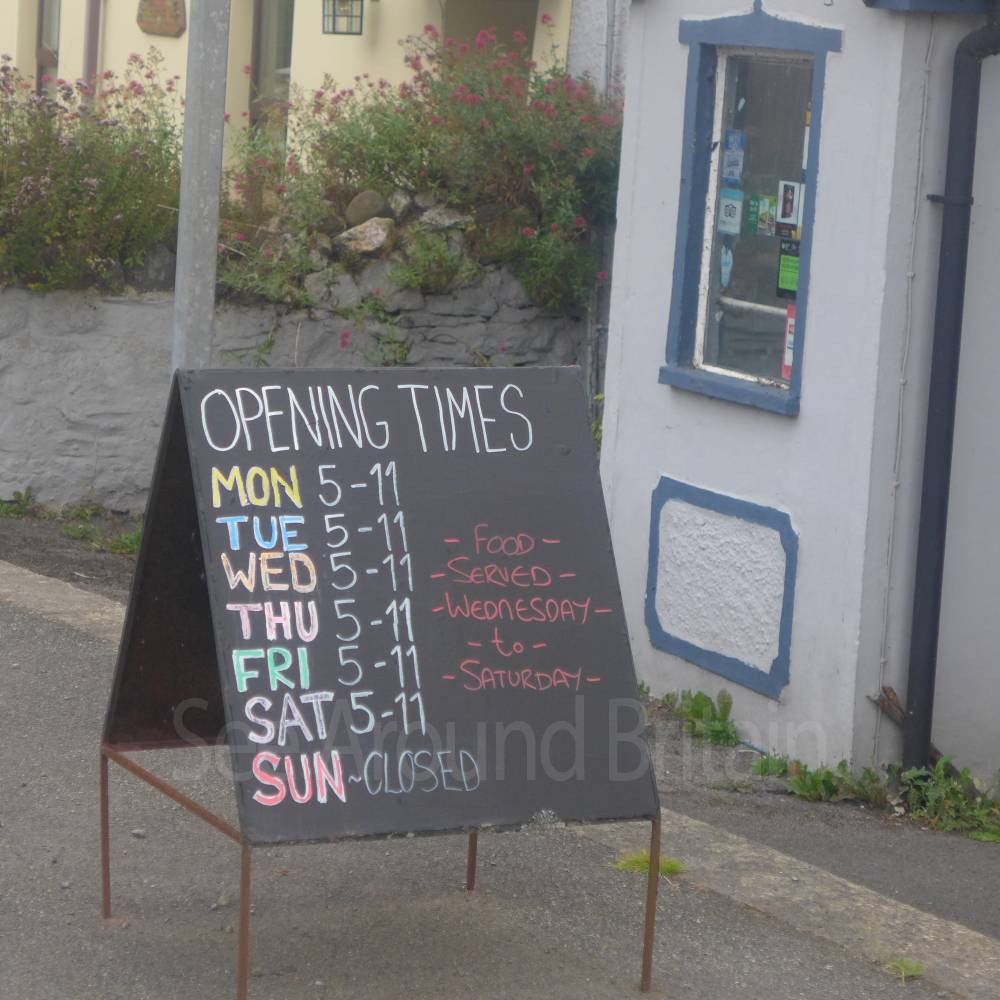 OPENING TIMES
MON 5-11
TUE 5-11
WED 5-11
THU 5-11
FRI 5-11
SAT 5-11
SUN ~ CLOSED
- FOOD -
- SERVED -
- WEDNESDAY -
- to -
- SATURDAY -
See Around Britain